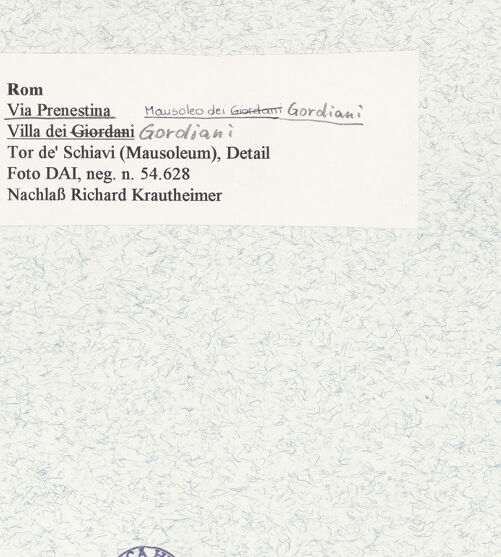 Rom
Via Prenestina Mausoleo dei Giordani Gordiani
Villa dei Giordani Gordiani
Tor de' Schiavi (Mausoleum), Detail
Foto DAI, neg. n. 54.628
Nachlaß Richard Krautheimer